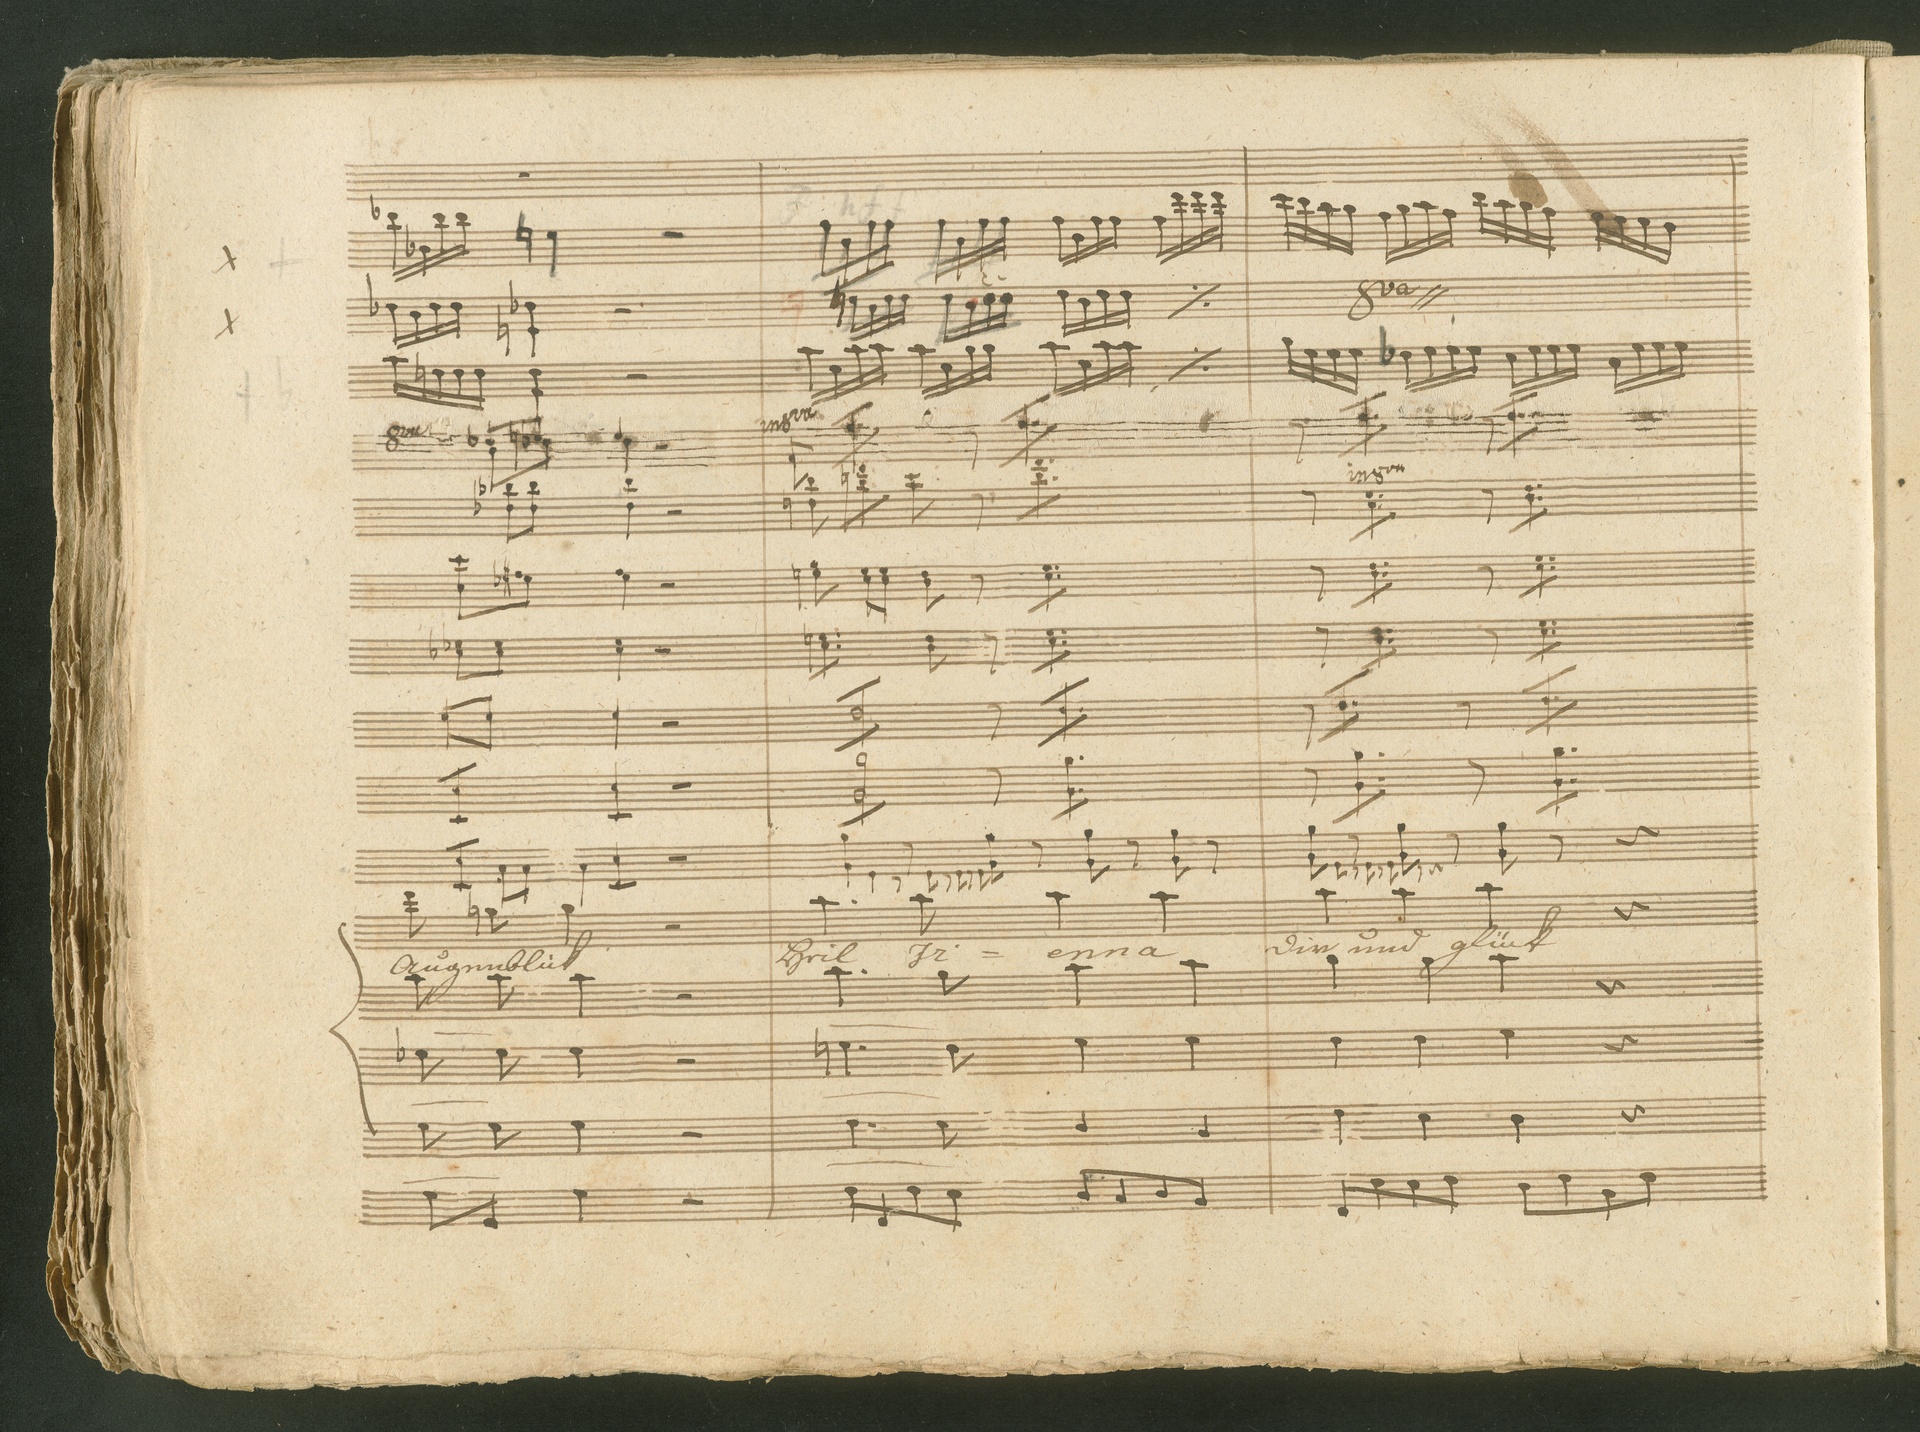 8va
8va
in 8va
in 8va
Augenblick
Heil Ir = enna Dir und glück